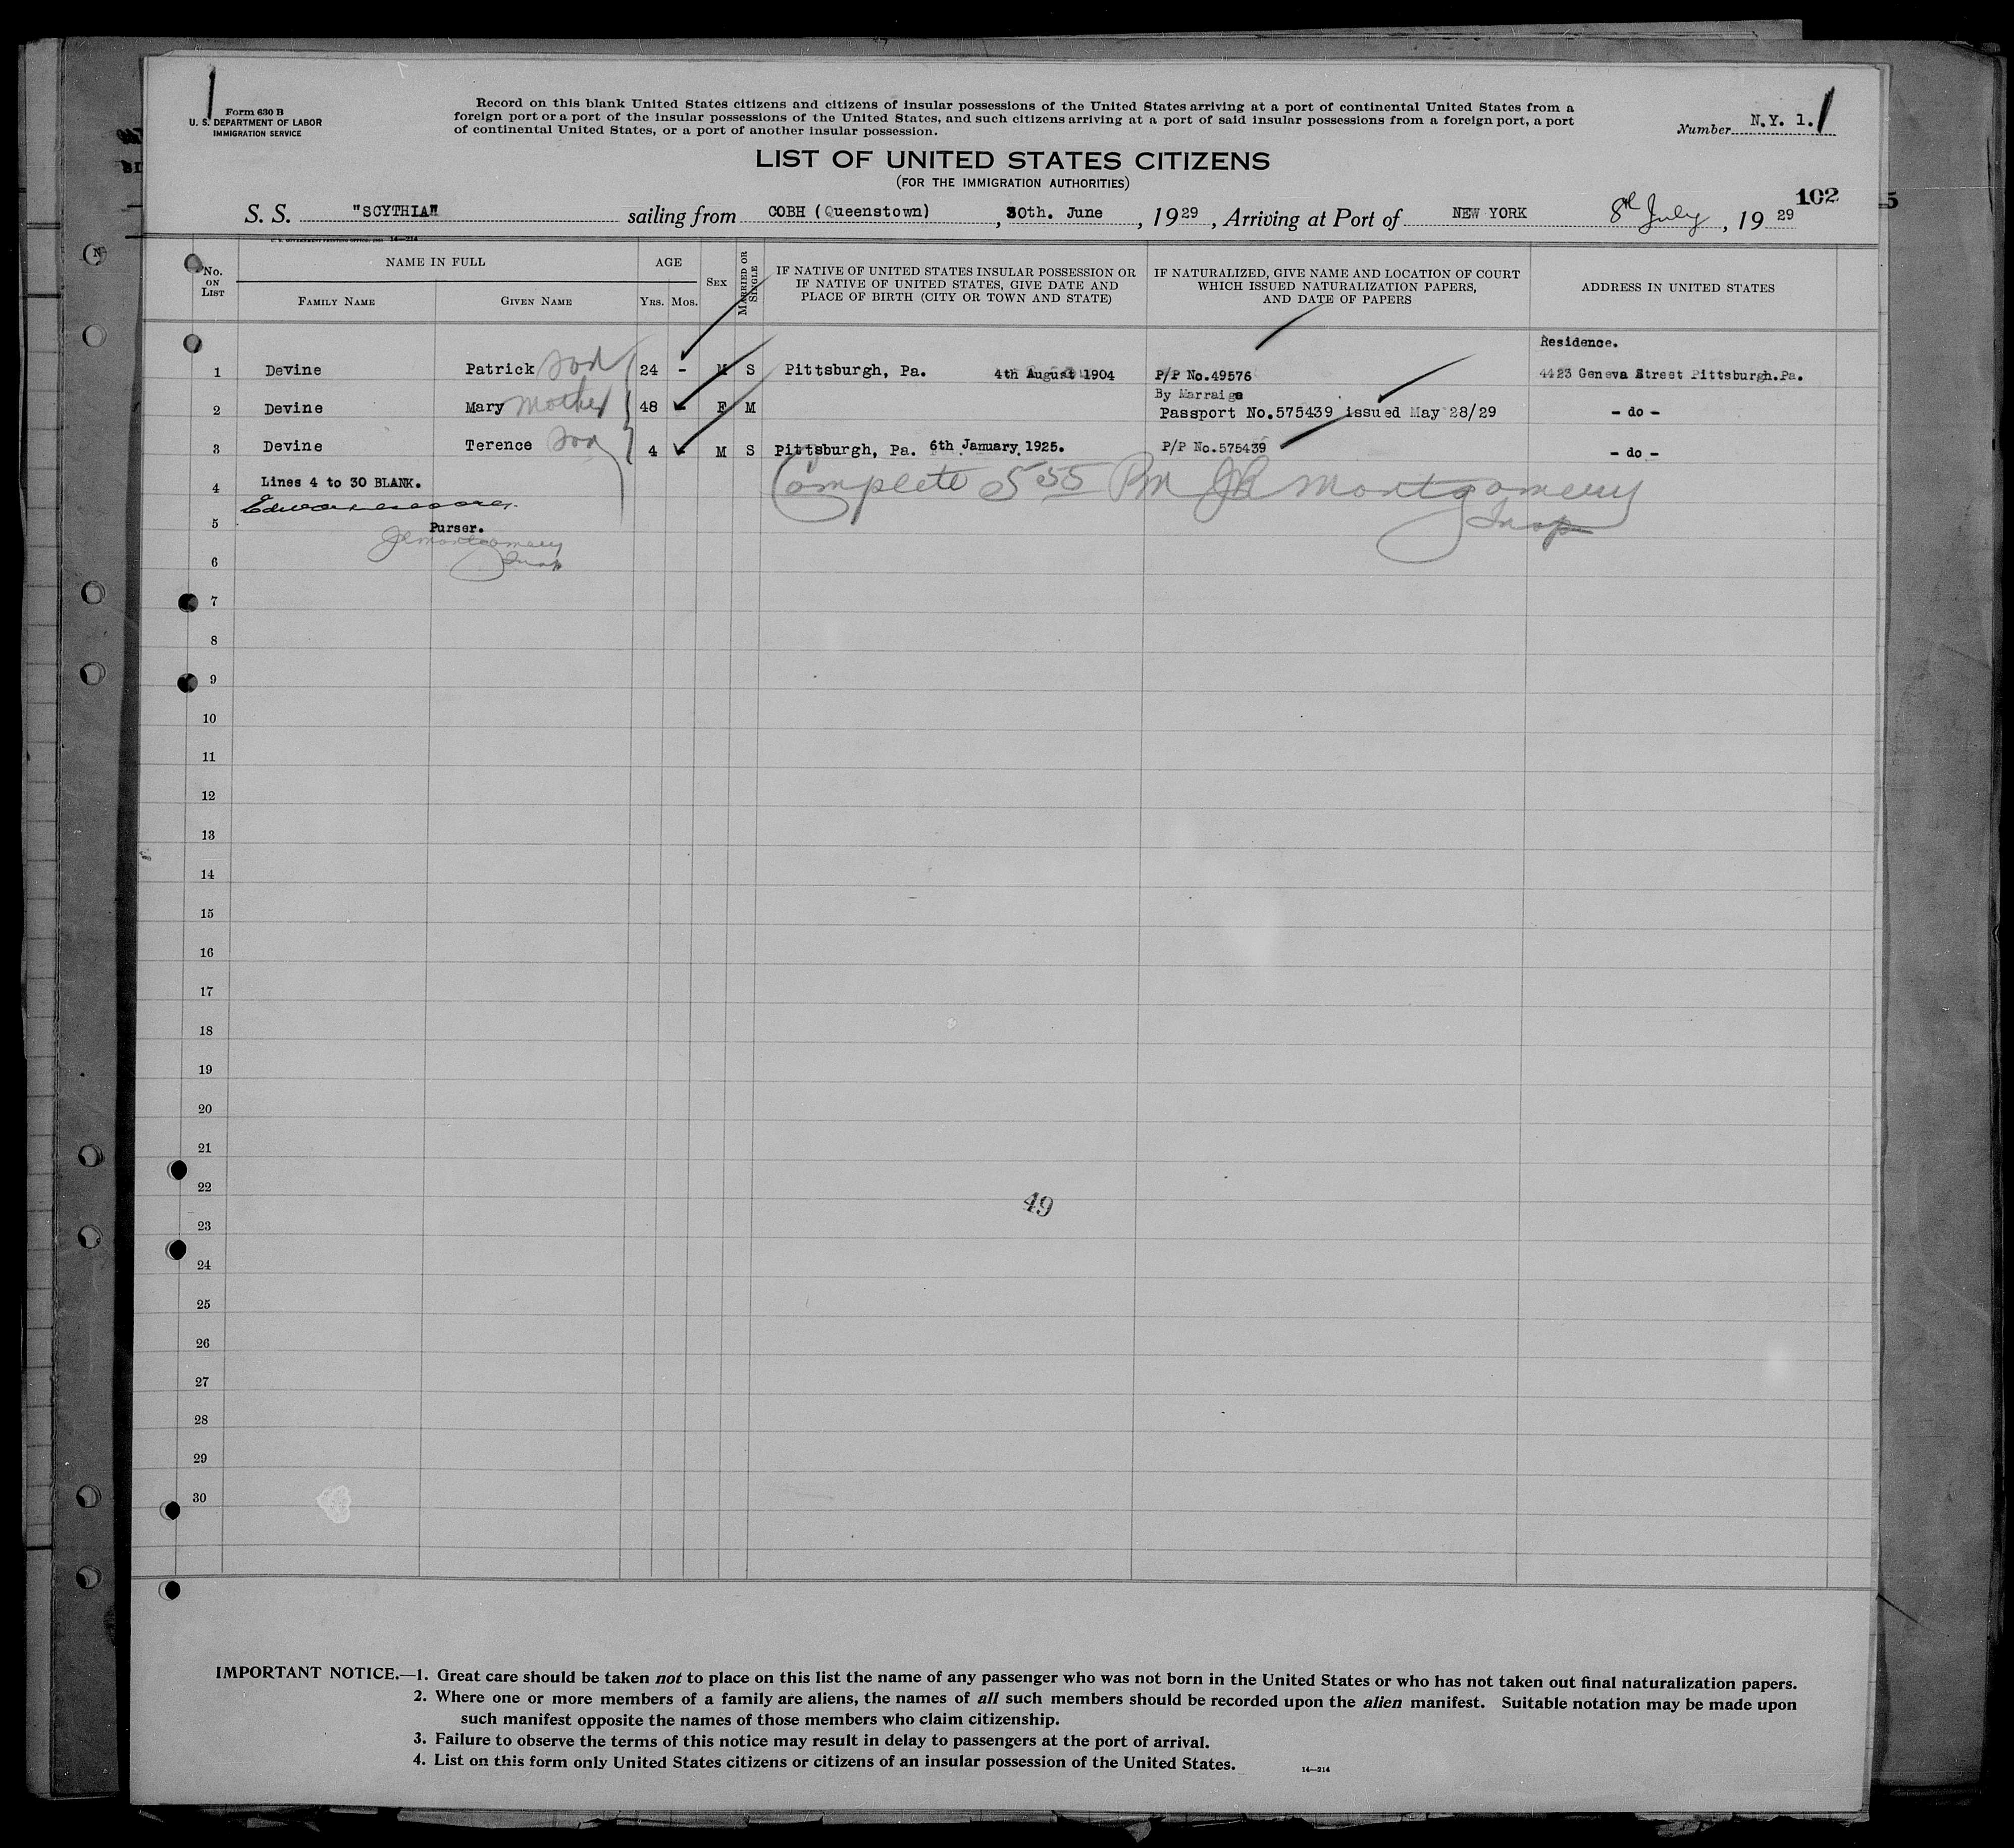 Form 630 B
U. S. DEPARTMENT OF LABOR
IMMIGRATION SERVICE
Record on this blank United States citizens and citizens of insular possessions of the United States arriving at a port of continental United States from a
foreign port or a port of the insular possessions of the United States, and such citizens arriving at a port of said insular possessions from a foreign port, a port
of continental United States, or a port of another insular possession.
Number N.Y. 1.
LIST OF UNITED STATES CITIZENS
(FOR THE IMMIGRATION AUTHORITIES)
102
S. S. "SCYTHIA" sailing from COBH (Queenstown), 30th. June, 1929, Arriving at Port of NEW YORK 8th July, 1929
14—214
No. ON LIST NAME IN FULL FAMILY NAME GIVEN NAME AGE YRS. MOS. SEX MARRIED OR SINGLE IF NATIVE OF UNITED STATES INSULAR POSSESSION OR IF NATIVE OF UNITED STATES, GIVE DATE AND PLACE OF BIRTH (CITY OR TOWN AND STATE) IF NATURALIZED, GIVE NAME AND LOCATION OF COURT WHICH ISSUED NATURALIZATION PAPERS, AND DATE OF PAPERS ADDRESS IN UNITED STATES
Residence.
1 Devine Patrick son 24 - M S Pittsburgh, Pa. 4th August 1904 P/P No.49576 4423 Geneva Street Pittsburgh.Pa.
By Marraige
2 Devine Mary mother 48 F M Passport No.575439 issued May 28/29 - do -
3 Devine Terence son 4 M S Pittsburgh, Pa. 6th January 1925. P/P No.575439 - do -
4 Lines 4 to 30 BLANK. Complete 5 55 Pm JE Montgomery
Insp
5 Purser.
JE Montgomery
6 Insp
7
8
9
10
11
12
13
14
15
16
17
18
19
20
21
22
49
23
24
25
26
27
28
29
30
IMPORTANT NOTICE.—1. Great care should be taken not to place on this list the name of any passenger who was not born in the United States or who has not taken out final naturalization papers.
2. Where one or more members of a family are aliens, the names of all such members should be recorded upon the alien manifest. Suitable notation may be made upon
such manifest opposite the names of those members who claim citizenship.
3. Failure to observe the terms of this notice may result in delay to passengers at the port of arrival.
4. List on this form only United States citizens or citizens of an insular possession of the United States.
14—214